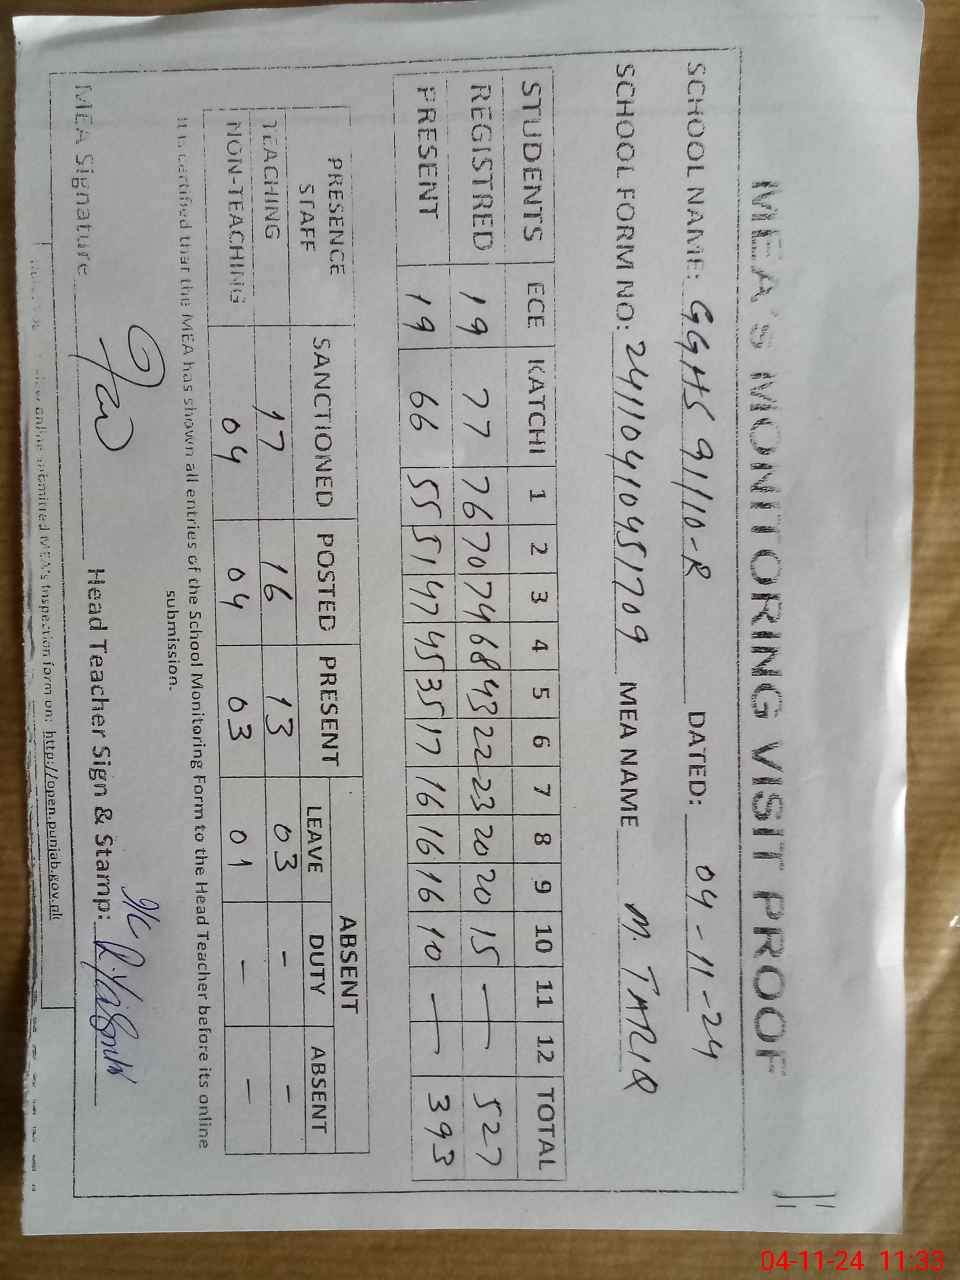 MEA's MONITORING VISIT PROOF
SCHOOL NAME: GGHS 91/10-R DATED: 04-11-24
SCHOOL FORM NO: 24110410451709 MEA NAME M. TARIQ
STUDENTS ECE KATCHI 1 2 3 4 5 6 7 8 9 10 11 12 TOTAL
REGISTRED 19 77 76 70 74 68 43 22 23 20 20 15 — 527
PRESENT 19 66 55 51 47 45 35 17 16 16 16 10 — 393
PRESENCE STAFF SANCTIONED POSTED PRESENT ABSENT
LEAVE DUTY ABSENT
TEACHING 17 16 13 03 - -
NON-TEACHING 04 04 03 01 - -
It is certified that the MEA has shown all entries of the School Monitoring Form to the Head Teacher before its online
submission.
MEA Signature Head Teacher Sign & Stamp: I/C
view online submitted MEA's Inspection form on: http://open.punjab.gov.pk
04-11-24 11:33